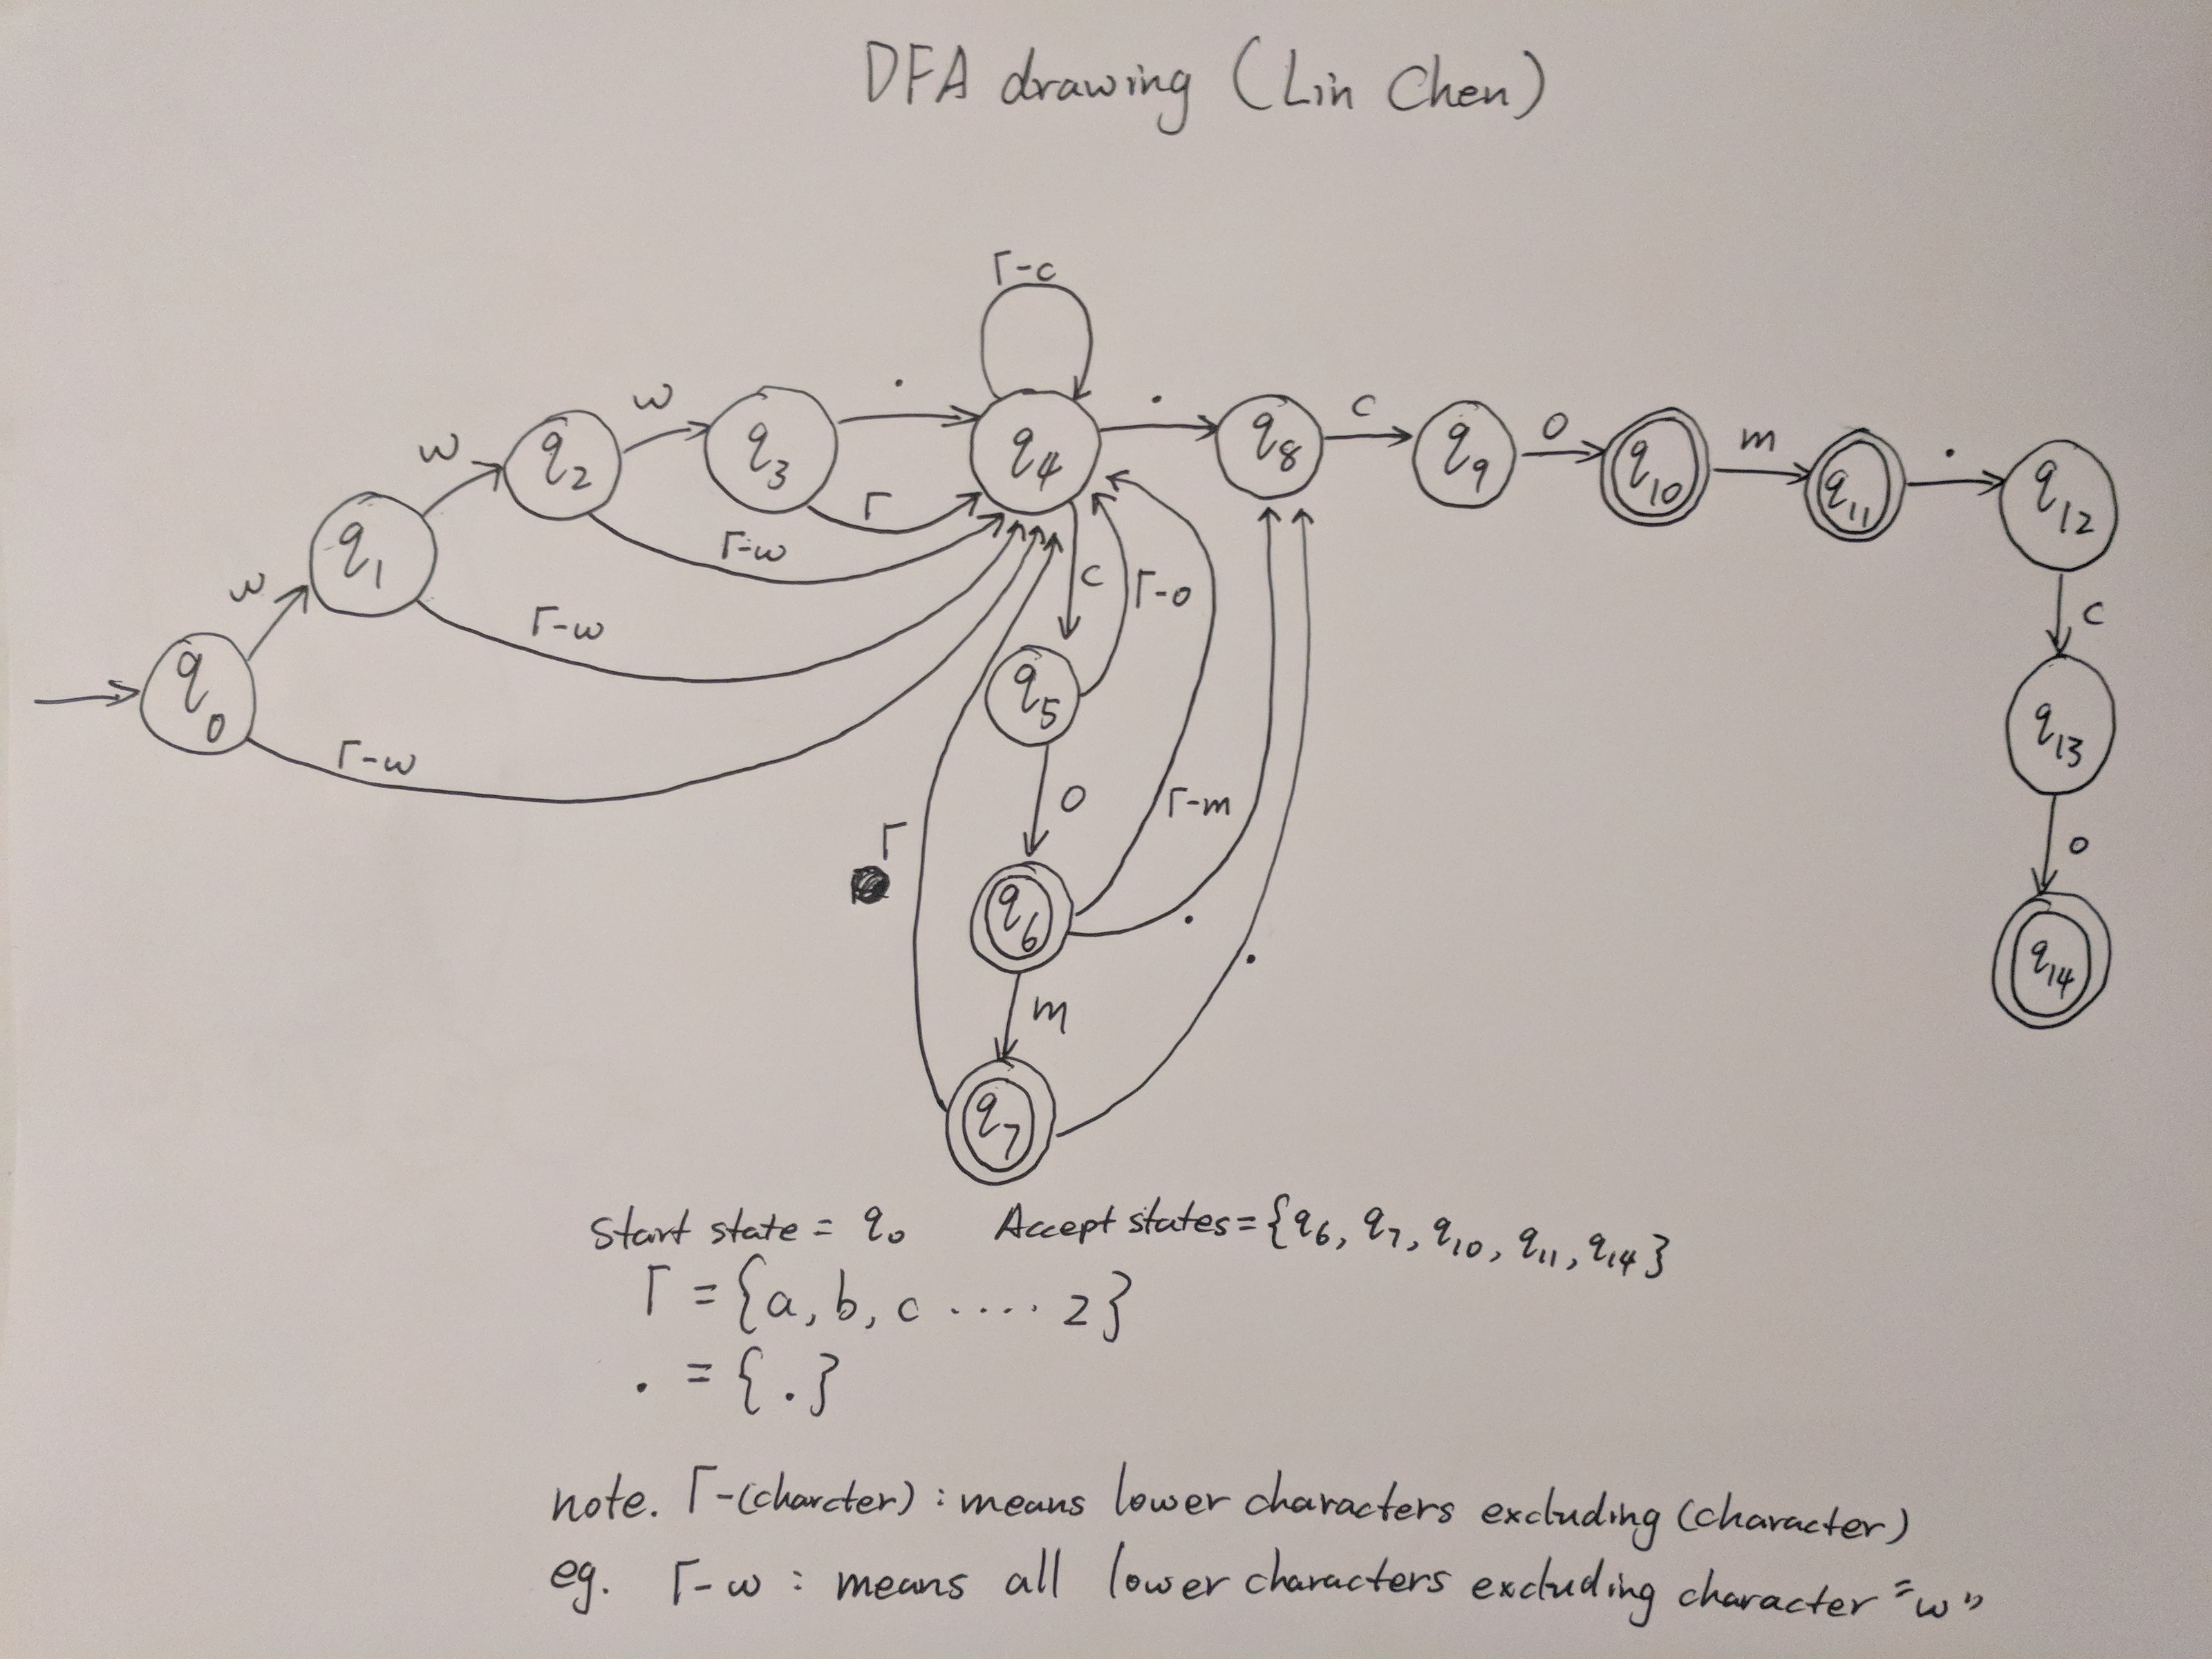 DFA drawing (Lin Chen)
Γ-c
w w . . c o m .
q0 q1 q2 q3 q4 q8 q9 q10 q11 q12
w Γ Γ-w Γ-w Γ-w
c Γ-o c
q5 q13
o Γ-m o
Γ
q6 . q14
.
m
q7
Start state = q0 Accept states={q6, q7, q10, q11, q14}
Γ = {a, b, c ..... z}
. = {.}
note. Γ-(charcter) : means lower characters excluding (character)
eg. Γ-w : means all lower characters excluding character "w"